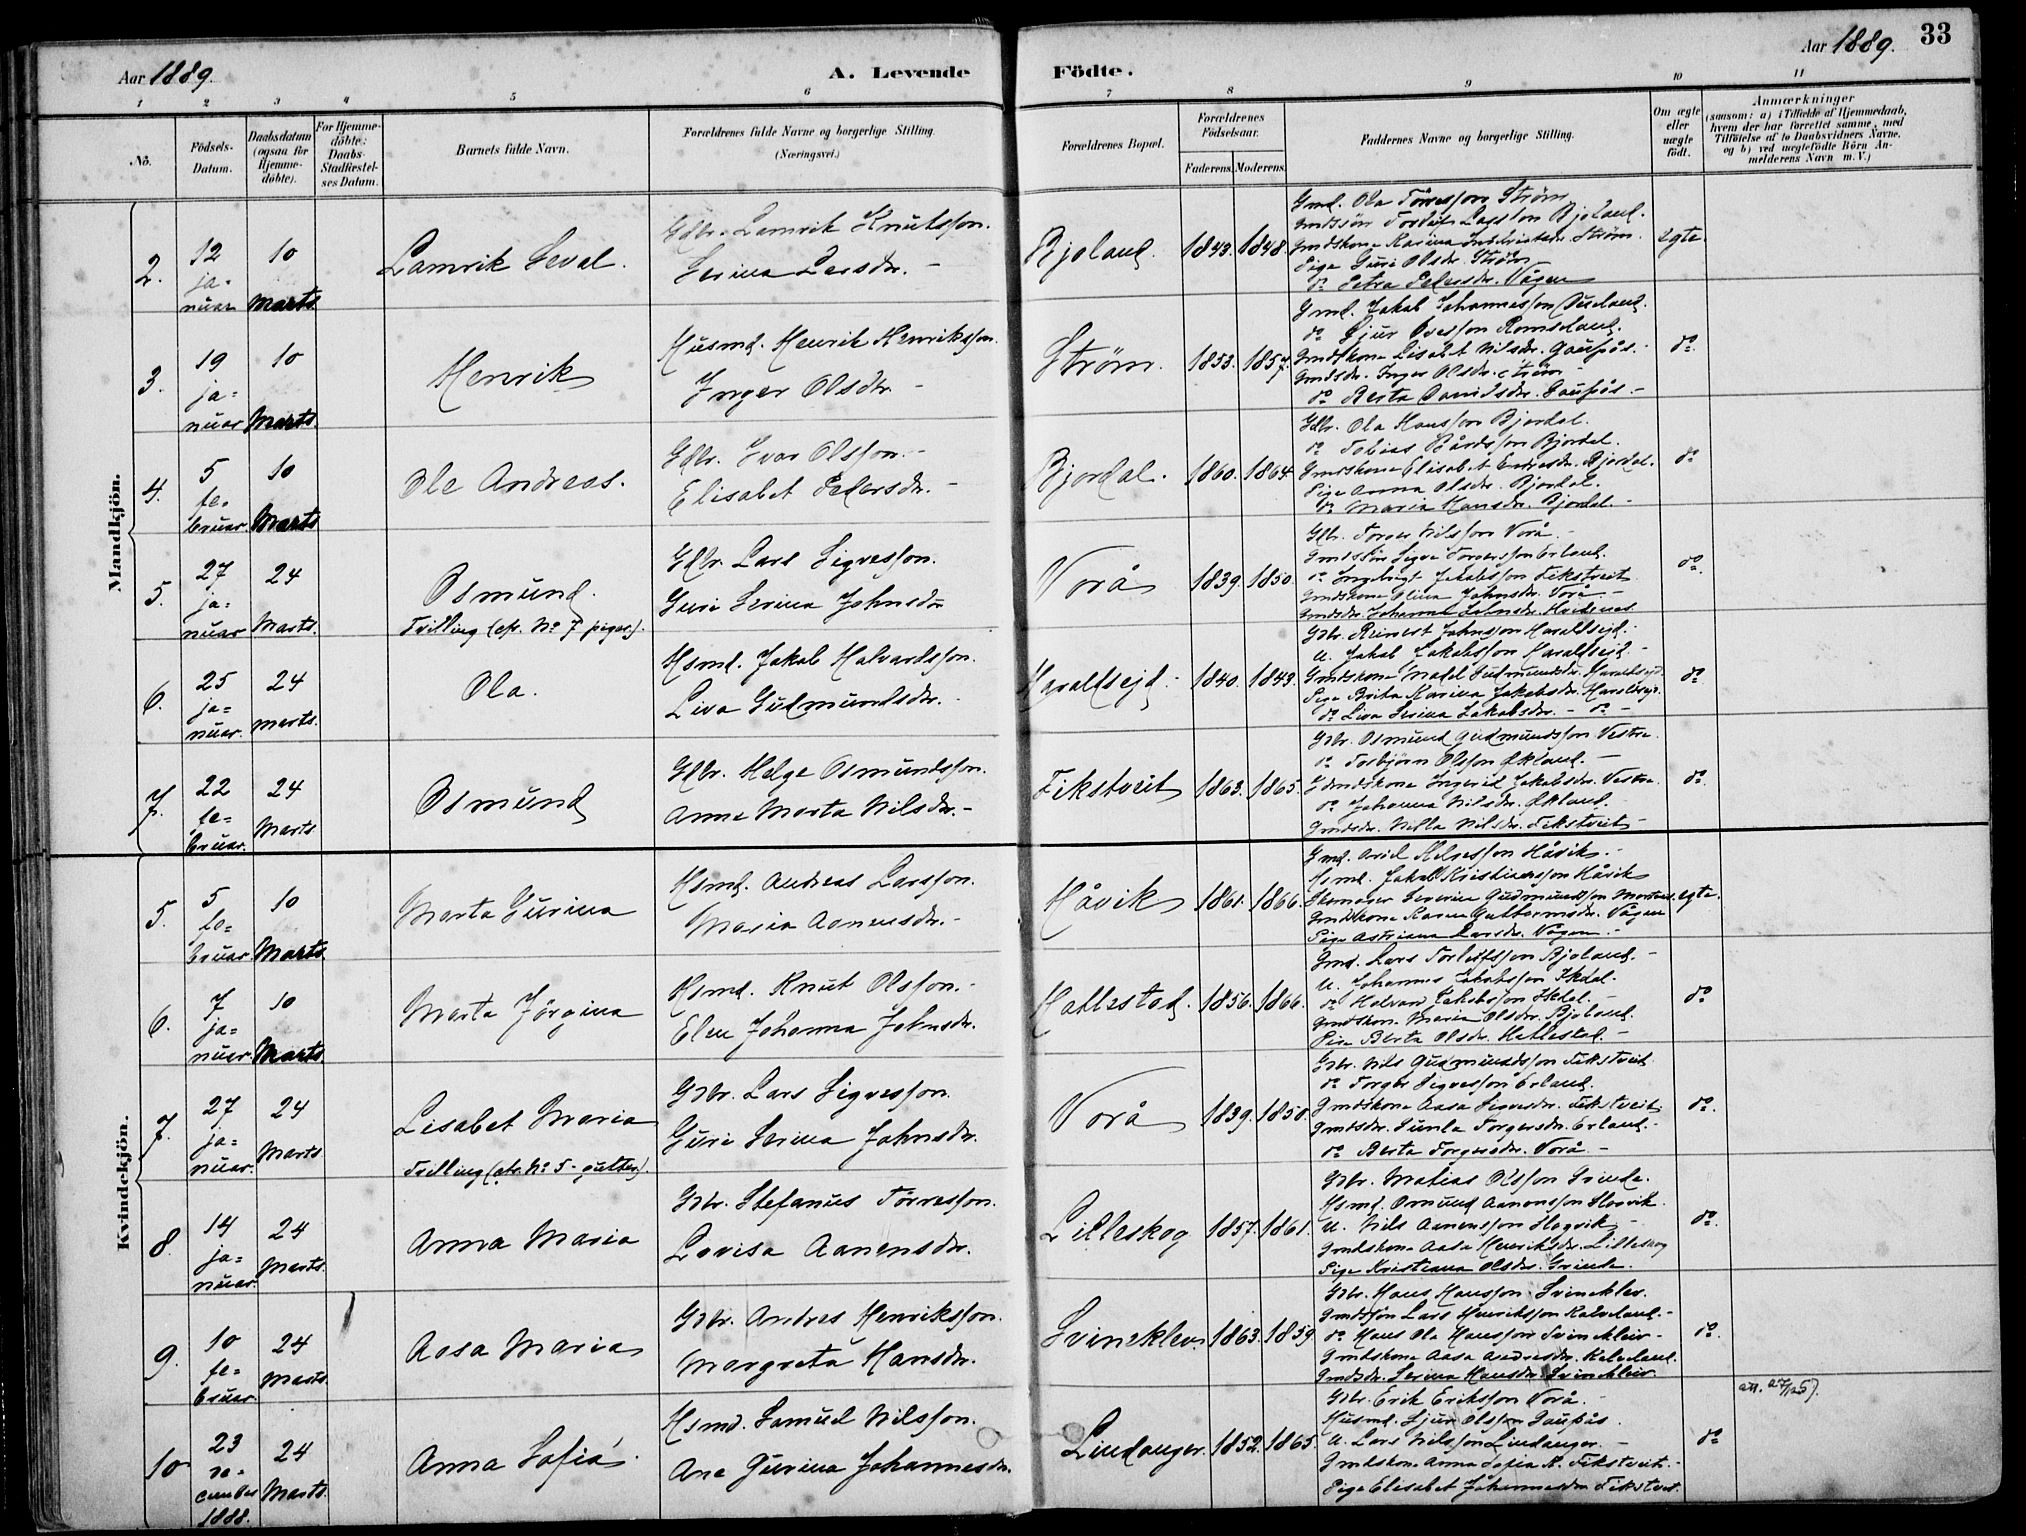 Aar 1889.
A. Levende Födte.
Aar 1889. 33
1 2 3 4 5 6 7 8 9 10 11
No.
Födsels-Datum.
Daabsdatum (ogsaa for Hjemme-döbte).
For Hjemme-döbte: Daabs-Stadfæstel-ses Datum.
Barnets fulde Navn.
Forældrenes fulde Navne og borgerlige Stilling.
(Næringsvei.)
Forældrenes Bopæl.
Forældrenes Födselsaar.
Faderens. Moderens.
Faddernes Navne og borgerlige Stilling.
Om ægte eller uægte födt.
Anmærkninger
(saasom: a) i Tilfælde af Hjemmedaab, hvem der har forrettet samme, med Tilföielse af to Daabsvidners Navne, og b) ved uægtefödte Börn Anmelderens Navn m. V.)
Mandkjön.
2. 12 januar 10 Marts. Lamrik Seval.
Gdbr. Lamrik Knutsson.
Serina Larsdr. -
Bjoland. 1843. 1848.
Gmd. Ola Törresson Ström
Pige Guri Olsdr. Ström
do Petra Pedersdr. Vågen
egte.
3. 19 januar 10 Marts. Henrik
Husmd. Henrik Henriksson.
Inger Olsdr. -
Ström. 1853. 1857.
Gmd. Jakob Johannesson
Gmdskone Lisabet Nilsdr. Gaupås.
Gmdsdr. Inger Olsdr. Ström -
do Berta Gaupås -
do.
4. 5 februar 10 Marts Ole Andreas.
Gdbr. Ivar Olsson. -
Elisabet Pedersdr. -
Bjordal. 1860. 1864.
Gdbr. Ola Hansson Bjordal.
do Tobias Bårdsson Bjordal.
Gmdskone Elisabet Bjordal.
Pige Anna Olsdr. Bjordal.
do Maria Hansdr. Bjordal. -
do
5. 27 januar 24 Marts. Osmund.
Tvilling (cfr. No 7 piger).
Gdbr. Lars Sigvesson.
Guri Serina Johnsdr
Vorå 1839. 1850.
Gdbr. Nilsson Vorå -
Gmdskone Olina Johnsdr. Vorå -
do.
6. 25 januar. 24 marts. Ola.
Hsmd. Jakob Halvardsson.
Liva Gudmundsdr. -
Haraldsejd. 1840. 1843.
Gdbr. Reinert Johnsson Haraldsejd. -
U. Jakob Jakobsson Haraldsejd -
Pige Brita Karina Jakobsdr. Haraldsejd.
do Liva Serina Jakobsdr. - do -
do
7. 22 februar. 24 Marts Osmund
Gdbr. Helge Osmundsson.
Anna Marta Nilsdr. -
Fikstveit 1863. 1865.
Gdbr. Osmund Gudmundsson Vestre.
do Torbjörn Olsson Økland. -
Gdmdskone Ingerid Jakobsdr. Vestre.
do Johanna Nilsdr. Økland. -
Gmdsdr. Nilla Nilsdr. Fikstveit -
do.
Kvindekjön.
5. 5 februar 10 Marts. Marta Gurina
Hsmd. Andreas Larsson.
Maria Aanensdr. -
Håvik 1861. 1866.
Hsmd. Jakob Kristiansson Håvik
Gmdskone Karen Guttormsdr. Vågen
Pige Astriana Larsdr. Vågen. -
egte.
6. 7 januar 10 Marts Marta Jörgina
Hsmd. Knut Olsson. -
Elen Johanna Johnsdr.
Hatlestad. 1856. 1866.
Gmd. Lars Torleifsson Bjoland. -
U. Johannes Jakobsson
do Halvard Jakobsson
Gmdskon. Maria Olsdr. Bjoland.
Pige Berta Olsdr. Hatlestad. -
do
7. 27 januar. 24 Marts Lisabet Maria
Tvilling (cfr. No 5 - gutter).
Gdbr. Lars Sigvesson.
Guri Serina Johnsdr.
Vorå 1839. 1850.
Gdbr. Nils Gudmundsson Fikstveit
do Torger Sigvesson Erland.
Gmdskone Aasa Sigvesdr. Fikstveit
Gmdsdr. Gunla Torgersdr. Erland. -
do Berta Torgersdr. Vorå -
do.
8. 14 januar. 24 Marts. Anna Maria
Gdbr. Stefanus Törresson.
Lovisa Aanensdr.
Lilleskog 1857. 1861.
Gdbr. Matias Olsson Grinde.
Hsmd. Omund Aanensson
U. Nils Aanensson
Gmdskone Aasa Henriksdr. Lilleskog
Pige Kristiana Olsdr. Grinde.
do.
9. 10 februar. 24 Marts. Aasa Maria
Gdbr. Andres Henriksson.
Margreta Hansdr.
Svinekleiv. 1863. 1859.
Gdbr. Hans Hansson Svinekleiv.
Gmdssön Lars Henriksson Kalveland. -
do Hans Ola Hansson Svinekleiv -
Gmdskone Aasa Andresdr. Kalveland.
Gmdsdr. Serina Hansdr. Svinekleiv.
do.
10 23 december 1888. 24 Marts. Anna Sofia.
Hsmd. Samuel Nilsson.
Ane Gurina Johannesdr.
Lindanger. 1852. 1865.
Gdbr. Erik Eriksson Vorå.
Husmd. Sjur Olsson Gaupås.
U. Lars Nilsson Lindanger. -
Gmdskone Anna Sofia N. Fikstveit. -
Pige Elisabet Johannesdr. Fikstveit.
do